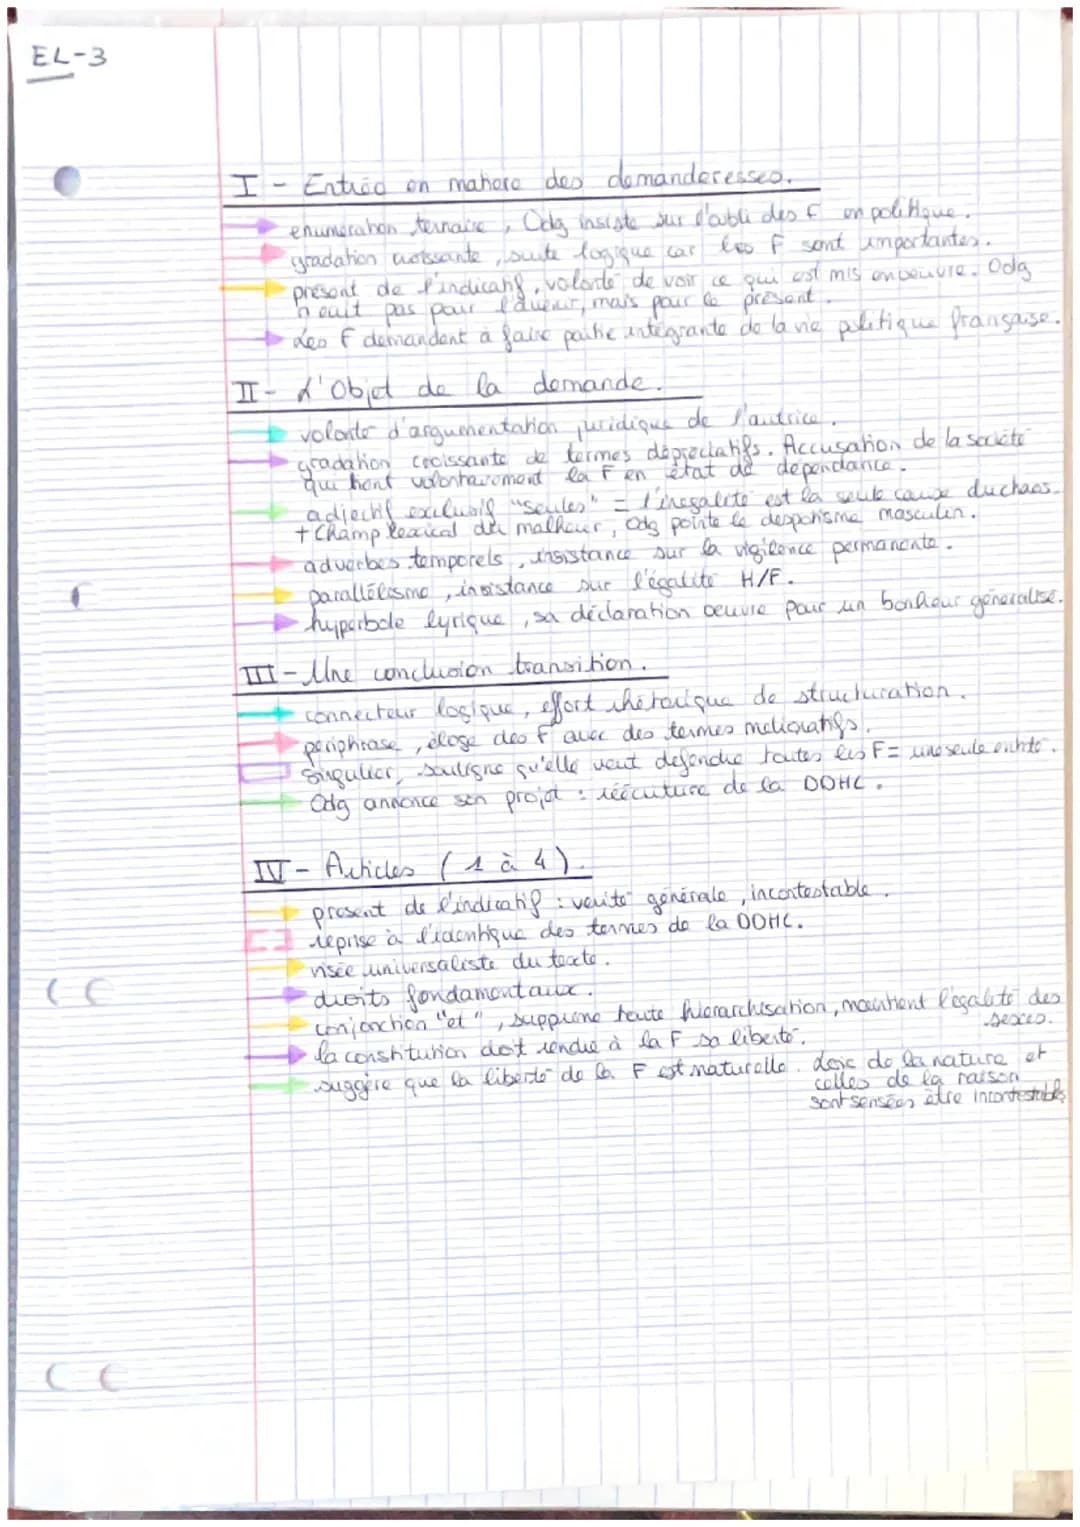 EL-3
I - Entrée en matière des demanderesses.
enumération ternaire, Odg insiste sur l'oubli des F en politique.
gradation croissante, suite logique car les F sont importantes.
présent de l'indicatif, volonté de voir ce qui est mis en oeuvre. Odg
n'ecrit pas pour l'avenir, mais pour le présent.
des F demandent à faire partie intégrante de la vie politique française.
II - L'Objet de la demande.
volonté d'argumentation juridique de l'autrice.
gradation croissante de termes dépréciatifs. Accusation de la société
qui tient volontairement la F en état de dépendance.
adjectif exclusif "seules" = l'inégalité est la seule cause du chaos.
+ Champ lexical du malheur, Odg pointe le despotisme masculin.
adverbes temporels, insistance sur la vigilence permanente.
parallélisme, insistance sur l'égalité H/F.
hyperbole lyrique, sa déclaration oeuvre pour un bonheur généralisé.
III - Une conclusion transition.
connecteur logique, effort rhétorique de structuration.
periphrase, éloge des F avec des termes melioratifs.
singulier, souligne qu'elle veut defendre toutes les F = une seule entité.
Odg annonce son projet : réécriture de la DDHC.
IV - Articles (1 à 4).
present de l'indicatif : verité générale, incontestable.
reprise à l'identique des termes de la DDHC.
visée universaliste du texte.
droits fondamentaux.
conjonction "et", supprime toute hierarchisation, maintient l'égalité des
sexes.
la constitution doit rendre à la F sa liberté.
suggère que la liberté de la F est naturelle. loix de la nature et
celles de la raison
sont sensées être incontestables